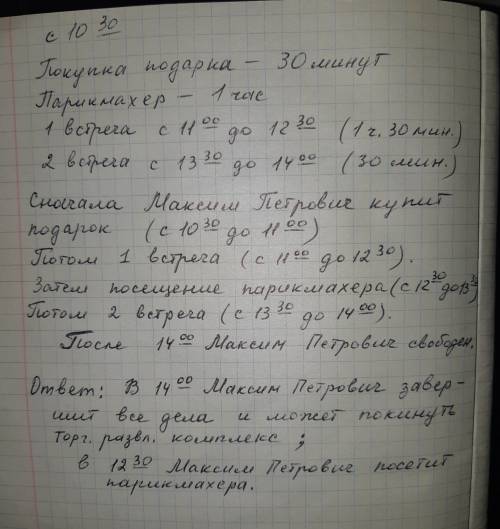 с 10 30
Покупка подарка – 30 минут
Парикмахер – 1 час
1 встреча с 11 00 до 12 30 (1 ч. 30 мин.)
2 встреча с 13 30 до 14 00 (30 мин.)
Сначала Максим Петрович купит
подарок (с 10 30 до 11 00)
Потом 1 встреча (с 11 00 до 12 30).
Затем посещение парикмахера (с 12 30 до 13 30)
Потом 2 встреча (с 13 30 до 14 00).
После 14 00 Максим Петрович свободен.
Ответ: В 14 00 Максим Петрович завер-
шит все дела и может покинуть
торг. развл. комплекс;
в 12 30 Максим Петрович посетит
парикмахера.